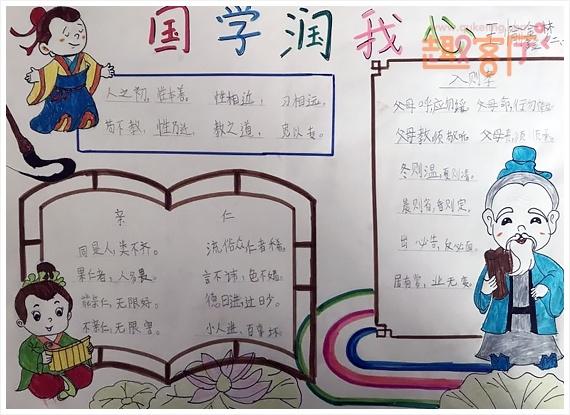 国学润我心
趣客学
人之初,性本善。 性相近,习相远。
苟不教,性乃迁。 教之道,贵以专。
亲 仁
同是人,类不齐。 流俗众,仁者稀。
果仁者,人多畏。 言不讳,色不媚。
能亲仁,无限好。 德日进,过日少。
不亲仁,无限害。 小人进,百事坏。
入则孝
父母呼,应勿缓。 父母命,行勿懒。
父母教,须敬听。 父母责,须顺承。
冬则温,夏则凊。
晨则省,昏则定。
出必告,反必面。
居有常,业无变。